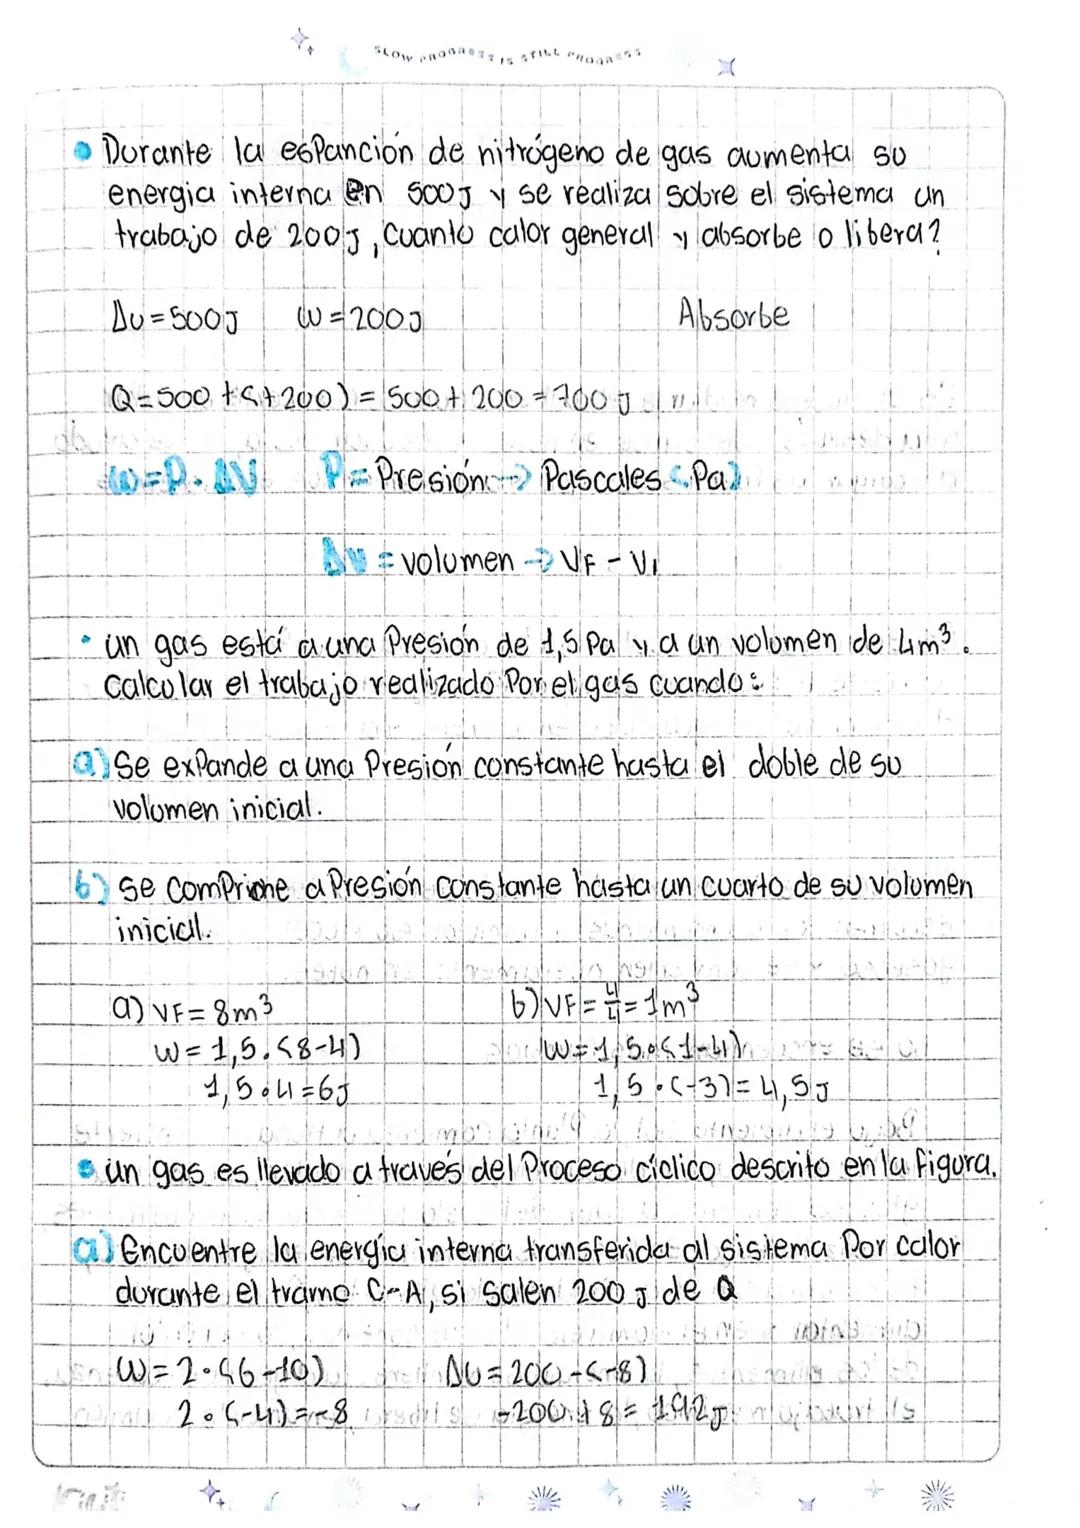 SLOW PROGRESS IS STILL PROGRESS
Durante la esPanción de nitrógeno de gas aumenta su
energia interna en 500J y se realiza sobre el sistema un
trabajo de 200J, Cuanto calor general y absorbe o libera?
Δu=500J W=200J Absorbe
Q=500+(+200)=500+200=700J
W=P·ΔV P=Presión→Pascales (Pa)
ΔV=volumen→VF-VI
un gas está a una Presión de 1,5Pa y a un volumen de 4m³.
Calcular el trabajo realizado Por el gas cuando:
a) Se exPande a una Presión constante hasta el doble de su
volumen inicial.
b) se comPrime a Presión constante hasta un cuarto de su volumen
inicial.
a) VF=8m³ b) VF=4/4=1m³
W=1,5.(8-4) W=1,5.(1-4)
1,5·4=6J 1,5·(-3)=4,5J
un gas es llevado a través del Proceso cíclico descrito en la figura.
a) Encuentre la energía interna transferida al sistema Por calor
durante el tramo C-A, si salen 200J de Q
W=2·(6-10) ΔU=200-(-8)
2·(-4)=-8 -200+8=192J